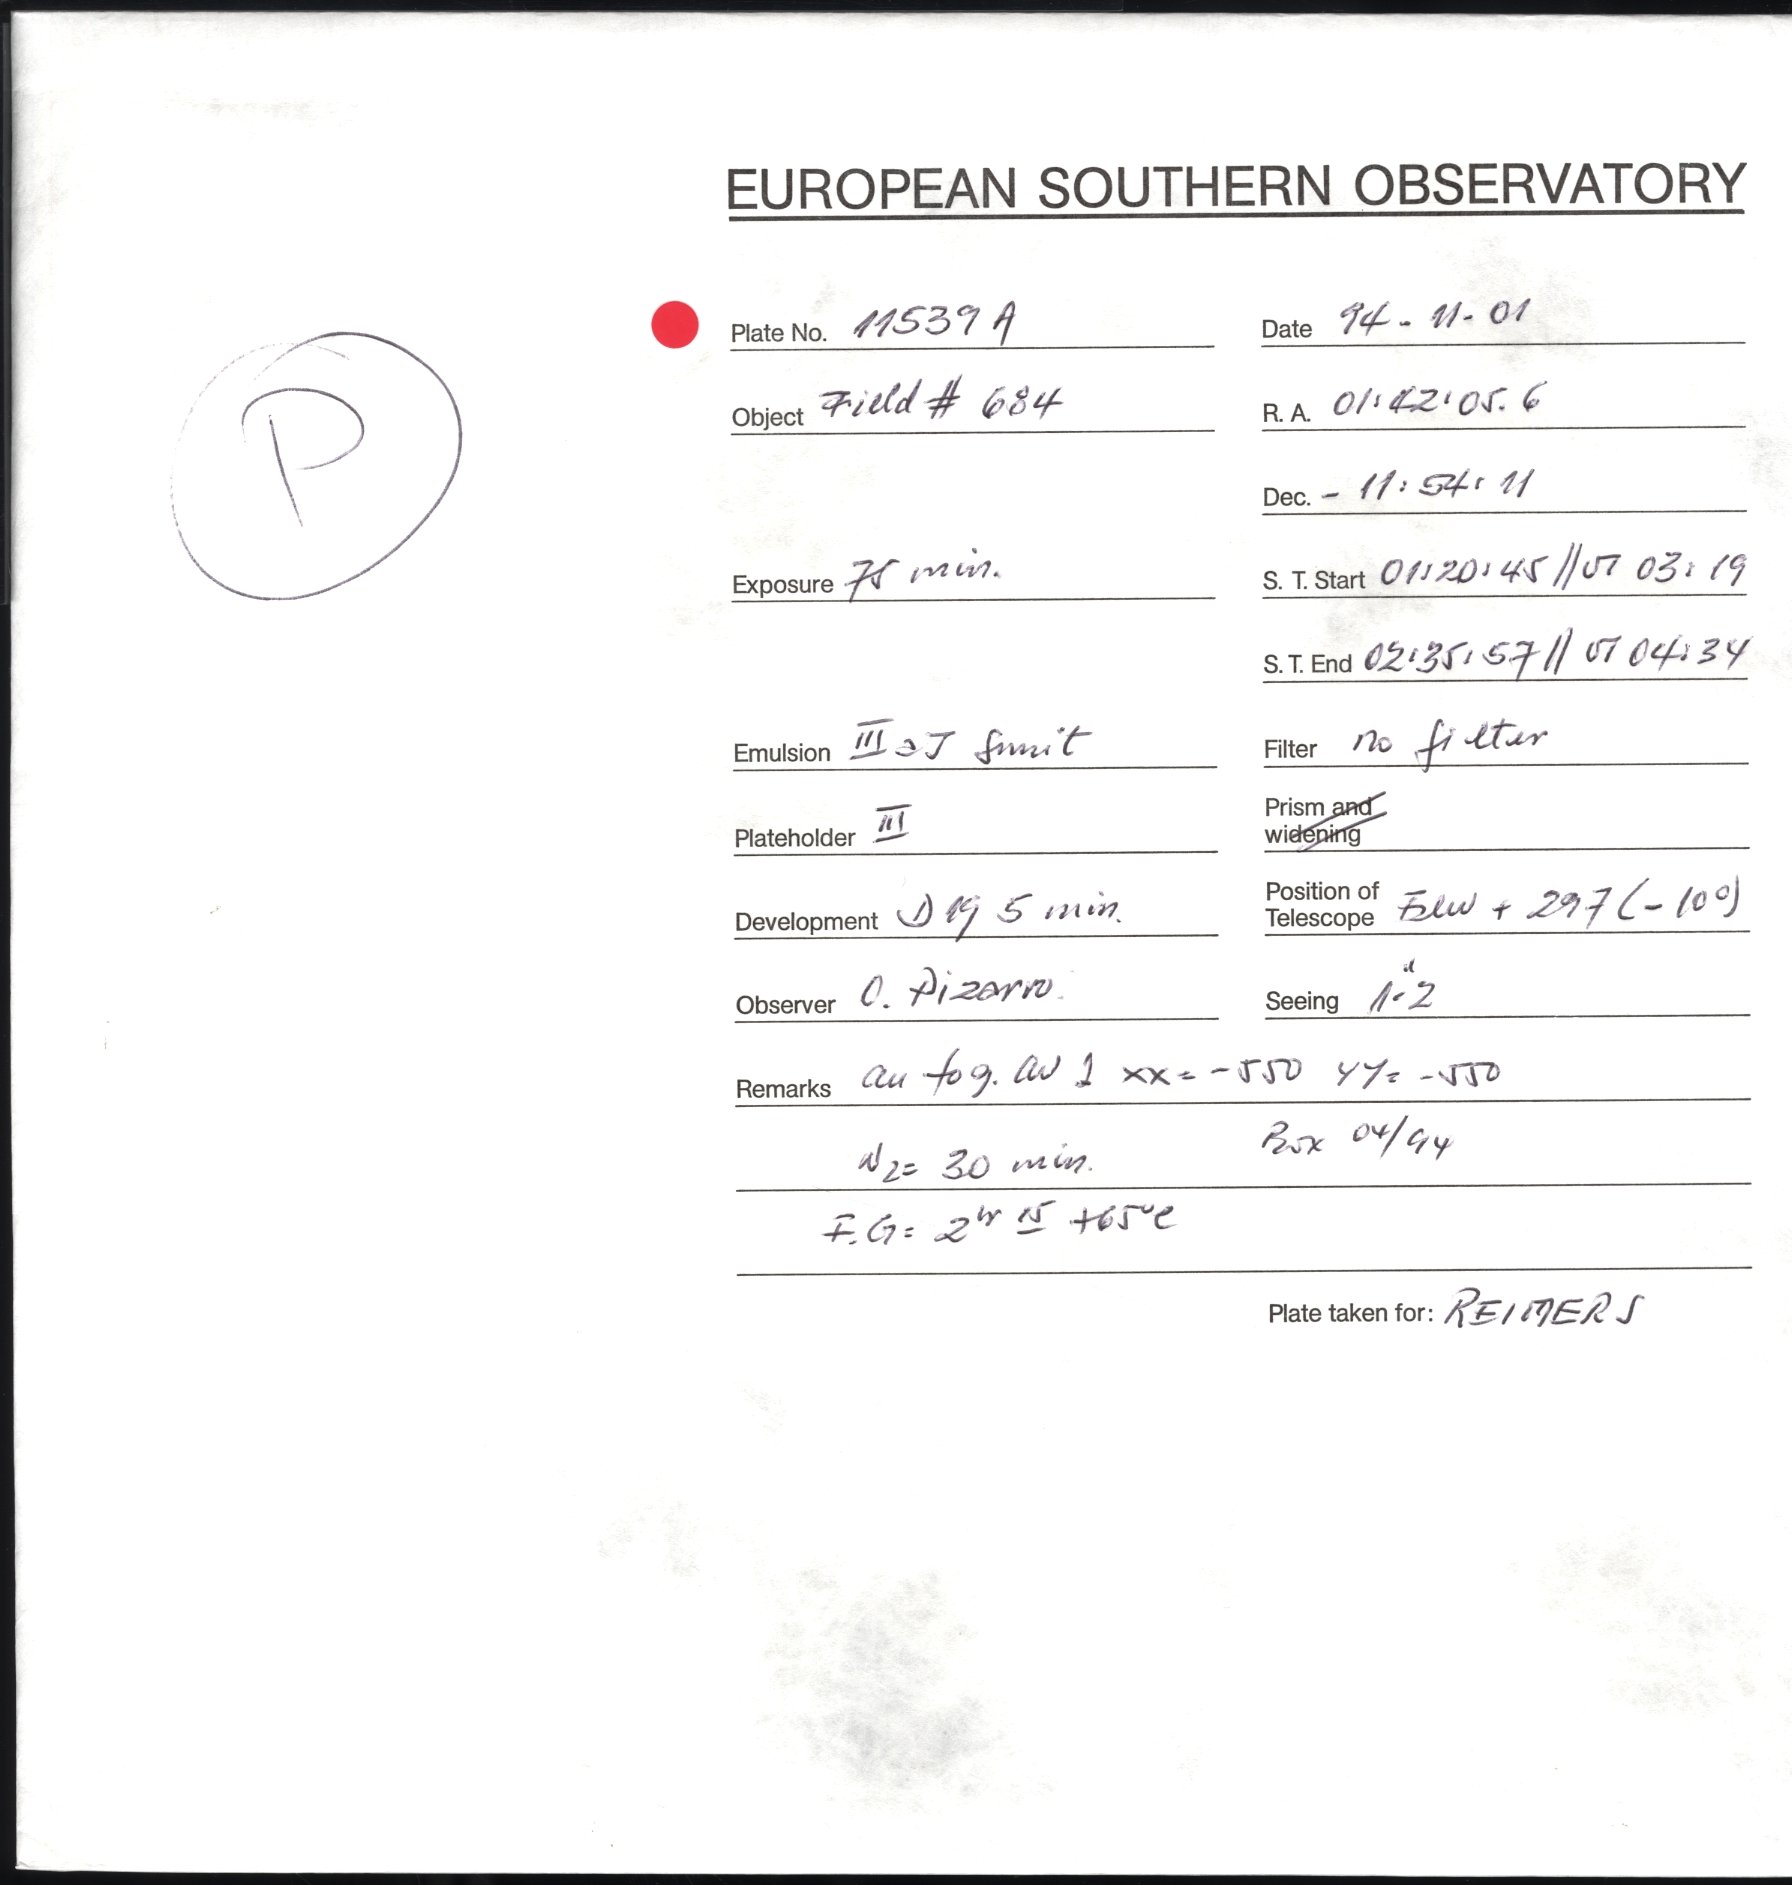 EUROPEAN SOUTHERN OBSERVATORY
P
Plate No. 11539 A Date 94-11-01
Object Field # 684 R. A. 01:42:05.6
Dec. - 11:54:11
Exposure 75 min. S. T. Start 01:20:45 // UT 03:19
S. T. End 02:35:57 // UT 04:34
Emulsion III aJ Filter no filter
Plateholder III Prism and
widening
Development D 19 5 min. Position of
Telescope + 297 (-10°)
Observer O. Pizarro. Seeing 1-2"
Remarks xx = -550 YY = -550
N2 = 30 min. Box 04/94
F.G = 2hr 15 +65°C
Plate taken for: REIMERS